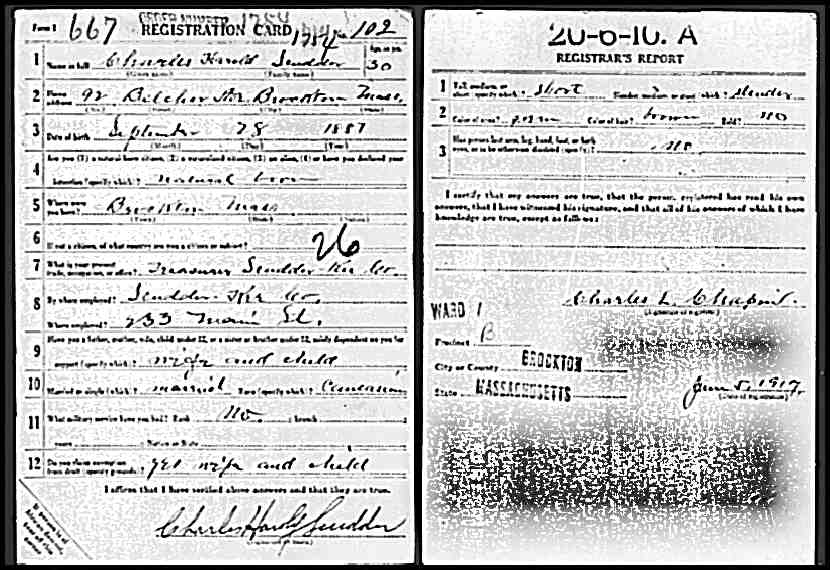 ORDER NUMBER 1754
Form 1 667 REGISTRATION CARD 1754 No. 102
1 Name in full Charles Harold Scudder Age, in yrs. 30
(Given name) (Family name)
2 Home address 92 Belcher Ave. Brockton Mass.
3 Date of birth September 28 1887
(Month) (Day) (Year)
4 Are you (1) a natural-born citizen, (2) a naturalized citizen, (3) an alien, (4) or have you declared your
intention (specify which)? natural born
5 Where were you born? Brockton Mass
(Town) (State) (Nation)
6 If not a citizen, of what country are you a citizen or subject?
26
7 What is your present trade, occupation, or office? Treasurer Scudder Co.
8 By whom employed? Scudder Co.
Where employed? 233 Main St.
9 Have you a father, mother, wife, child under 12, or a sister or brother under 12, solely dependent on you for
support (specify which)? wife and child
10 Married or single (which)? married Race (specify which)? Caucasian
11 What military service have you had? Rank No ; branch
years ; Nation or State
12 Do you claim exemption from draft (specify grounds)? Yes wife and child
I affirm that I have verified above answers and that they are true.
Charles Harold Scudder
20-6-10. A
REGISTRAR'S REPORT
1 Tall, medium, or short (specify which)? Short Slender, medium, or stout (which)? Slender
2 Color of eyes? brown Color of hair? brown Bald? No
3 Has person lost arm, leg, hand, foot, or both eyes, or is he otherwise disabled (specify)? No
I certify that my answers are true, that the person registered has read his own
answers, that I have witnessed his signature, and that all of his answers of which I have
knowledge are true, except as follows:
Charles L. Chapin
(Signature of registrar)
WARD 1
Precinct B
City or County BROCKTON
State MASSACHUSETTS
June 5, 1917.
(Date of registration)